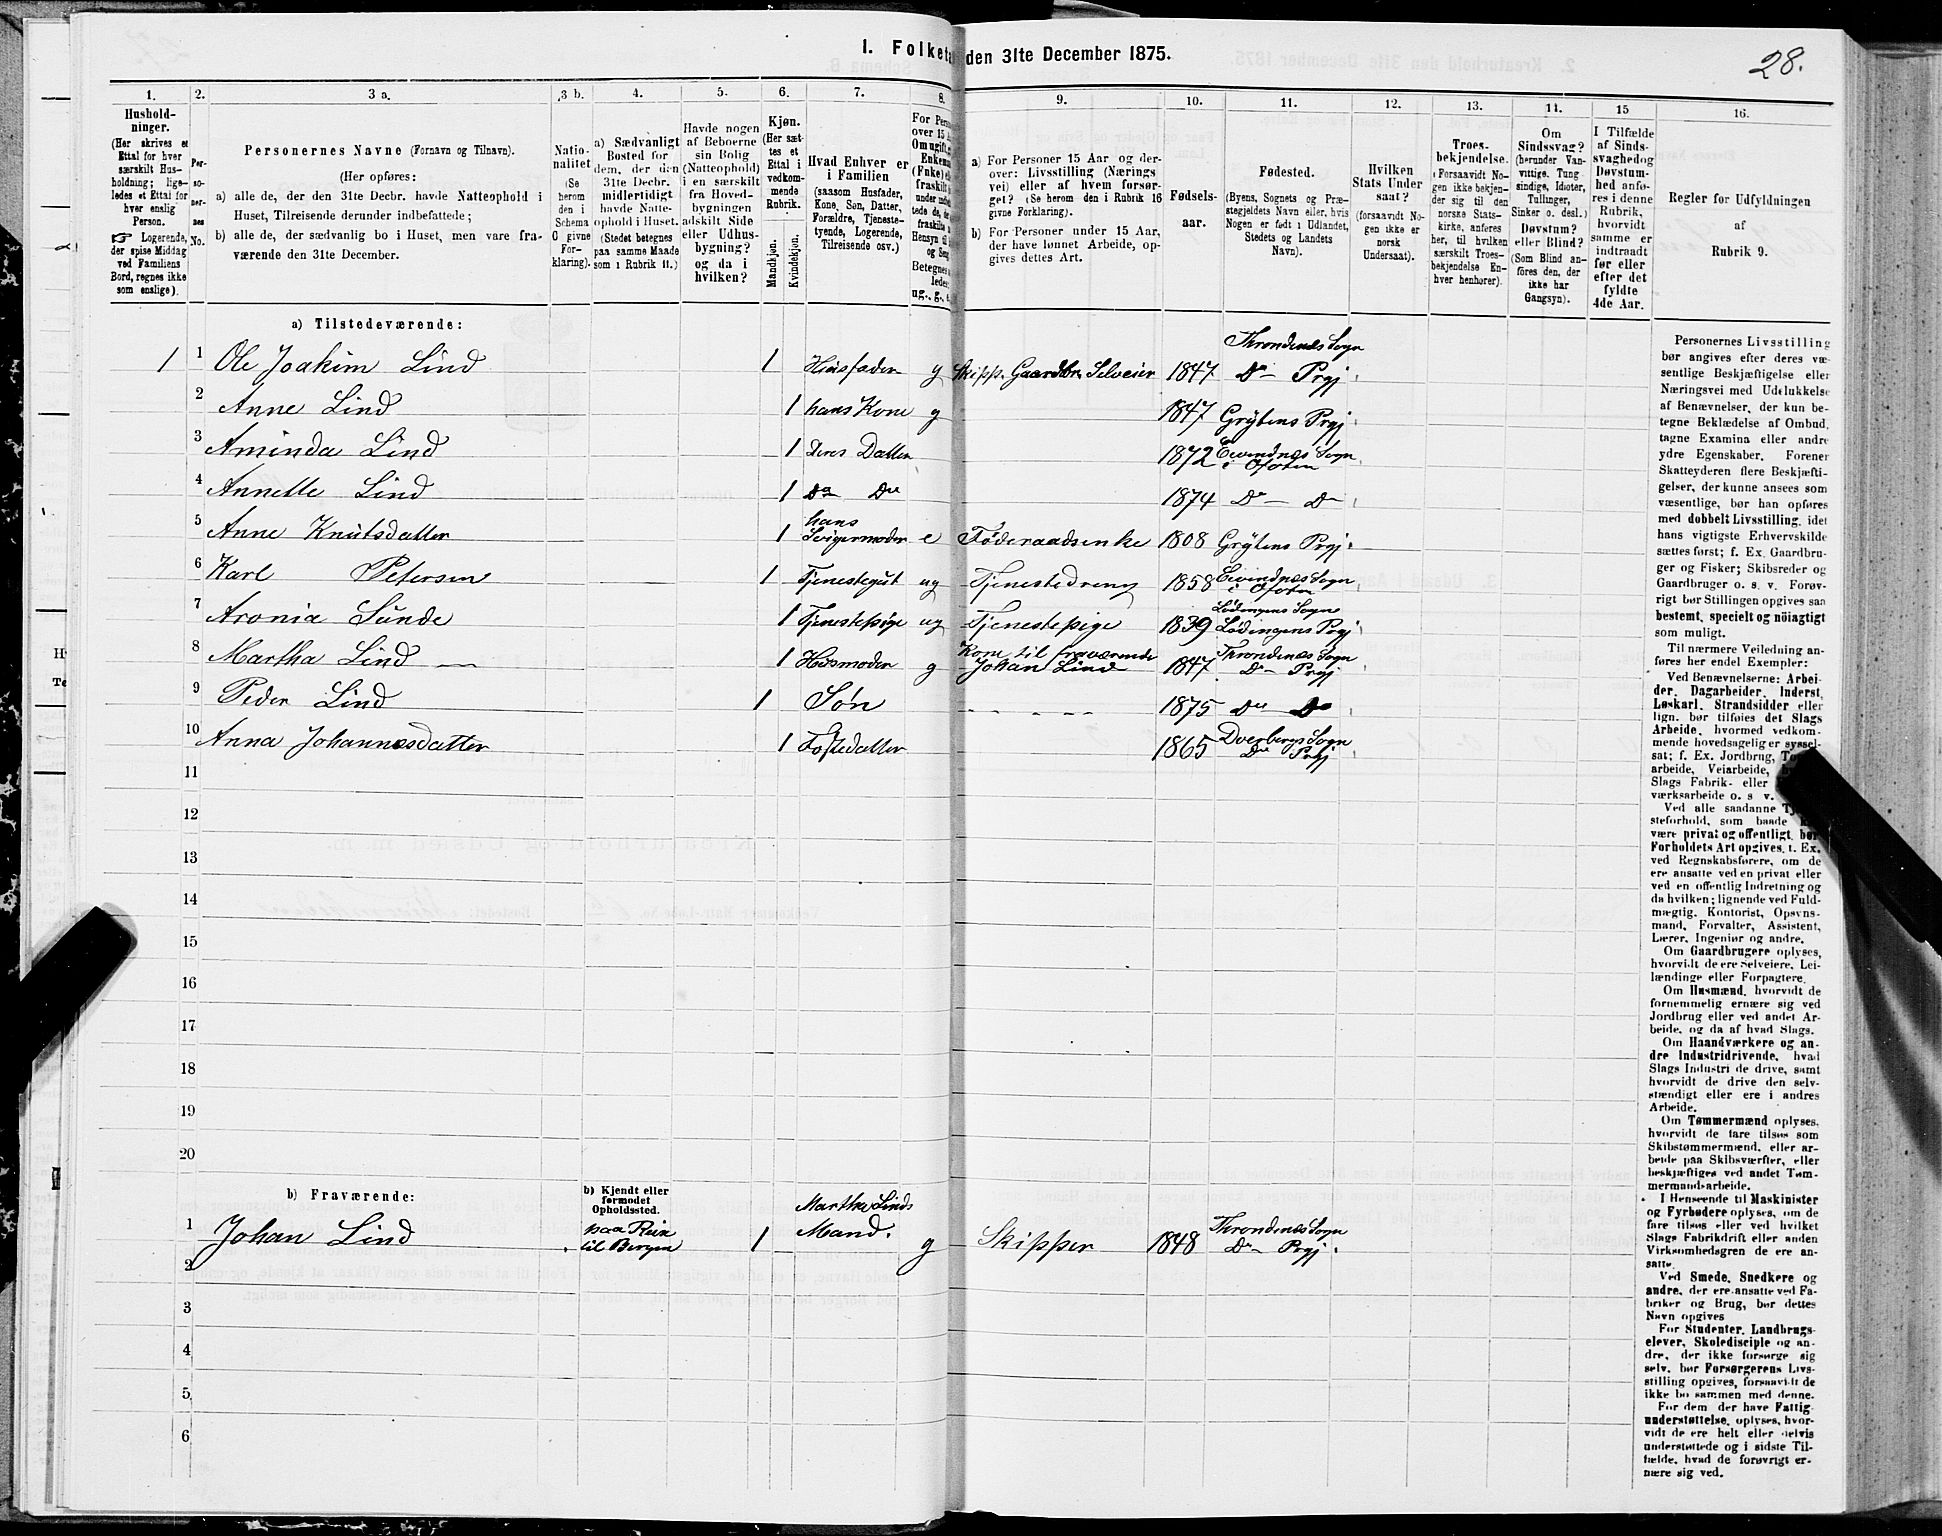 1. Folketæ den 31te December 1875.
28.
1. 2. 3 a. 3 b. 4. 5. 6. 7. 8. 9. 10. 11. 12. 13. 14. 15 16.
Hushold-
ninger.
(Her skrives et
Ettal for hver
særskilt Hus-
holdning; lige-
ledes et Ettal for
hver enslig
Person.
☞ Logerende,
der spise Middag
ved Familiens
Bord, regnes ikke
som enslige).
Per-
so-
ner-
nes
No.
Personernes Navne (Fornavn og Tilnavn).
(Her opføres:
a) alle de, der den 31te Decbr. havde Natteophold i
Huset, Tilreisende derunder indbefattede;
b) alle de, der sædvanlig bo i Huset, men vare fra-
værende den 31te December.
Natio-
nalitet
(Se
herom
den i
Schema
C givne
For-
klaring).
a) Sædvanligt
Bosted for
dem, der den
31te Decbr.
midlertidigt
havde Natte-
ophold i Huset.
(Stedet betegnes
paa samme Maade
som i Rubrik 11.)
Havde nogen
af Beboerne
sin Bolig
(Natteophold)
i en særskilt
fra Hoved-
bygningen
adskilt Side
eller Udhus-
bygning?
og da i
hvilken?
Kjøn.
(Her sæt-
tes et
Ettal i
vedkom-
mende
Rubrik.
Mandkjøn.
Kvindekjøn.
Hvad Enhver er
i Familien
(saasom Husfader,
Kone, Søn, Datter,
Forældre, Tjeneste-
tyende, Logerende,
Tilreisende osv.)
For Pers
over 15 A
Om ugift, g
Enkema
(Enke) el
fraskilt
Hensyn til
og Seng
Betegnes
ledes:
ug., g., e.
a) For Personer 15 Aar og der-
over: Livsstilling (Nærings
vei) eller af hvem forsør-
get? (Se herom den i Rubrik 16
givne Forklaring).
b) For Personer under 15 Aar,
der have lønnet Arbeide, op-
gives dettes Art.
Fødsels-
aar.
Fødested.
(Byens, Sognets og Præ-
stegjeldets Navn eller, hvis
Nogen er født i Udlandet,
Stedets og Landets
Navn).
Hvilken
Stats Under
saat?
(forsaavidt No-
gen ikke er
norsk
Undersaat).
Troes-
bekjendelse.
(Forsaavidt No-
gen ikke bekjen-
der sig til den
norske Stats-
kirke, anføres
her, til hvilken
særskilt Troes-
bekjendelse En-
hver henhører).
Om
Sindssvag?
(herunder Van-
vittige, Tung
sindige, Idioter,
Tullinger,
Sinker o. desl.)
Døvstum?
eller Blind?
(Som Blind an-
føres den, der
ikke har
Gangsyn).
I Tilfælde
af Sinds-
svaghed og
Døvstum-
hed anfø-
res i denne
Rubrik,
hvorvidt
samme er
indtraadt
før eller
efter det
fyldte
4de Aar.
Regler for Udfyldningen
af
Rubrik 9.
a) Tilstedeværende:
Throndenæs Sogn
1 1 Ole Joakim Lind 1 Husfader g Skipp. Gaardbr. Selveier 1847 Do Prgj
2 Anne Lind 1 hans Kone g 1847 Grytens Prgj
3 Aminda Lind 1 Deres Datter 1872 Evindnæs Sogn
i Ofoten
4 Annette Lind 1 Do Do 1874 Do Do
hans
5 Anne Knutsdatter 1 Svigermoder e Føderaadsenke 1808 Grytens Prgj.
6 Karl Petersen 1 Tjenestegut ug Tjenestedreng 1858 Evindnæs Sogn
i Ofoten
Lødingens Sogn
7 Aronia Sunde 1 Tjenestepige ug Tjenestepige 1839 Lødingens Prgj
Kone til fraværende Throndenæs Sogn
8 Martha Lind 1 Husmoder g Johan Lind 1847 Do Prgj
9 Peder Lind 1 Søn 1875 Do Do
Dverbergs Sogn
10 Anna Johannesdatter 1 Fostedatter 1865 Do Prgj
11
12
13
14
15
16
17
18
19
20
b) Fraværende:
b) Kjendt eller
formodet
Opholdssted.
Martha Linds
1 Johan Lind paa Reise
til Bergen 1 Mand. g Skipper 1848 Throndenæs Sogn
Do Prgj.
2
3
4
5
6
Personernes Livsstilling
bør angives efter deres væ-
sentlige Beskjæftigelse eller
Næringsvei med Udelukkelse
af Benævnelser, der kun be-
tegne Beklædelse af Ombud,
tagne Examina eller andre
ydre Egenskaber. Forener
Skatteyderen flere Beskjæfti-
gelser, der kunne ansees som
væsentlige, bør han opføres
med dobbelt Livsstilling, idet
hans vigtigste Erhvervskilde
sættes først; f. Ex. Gaardbru-
ger og Fisker; Skibsreder og
Gaardbruger o. s. v. Forøv-
rigt bør Stillingen opgives saa
bestemt, specielt og nöiagtigt
som muligt.
Til nærmere Veiledning an-
føres her endel Exempler:
Ved Benævnelserne: Arbei-
der, Dagarbeider, Inderst,
Løskarl, Strandsidder eller
lign. bør tilføies det Slags
Arbeide, hvormed vedkom-
mende hovedsagelig er syssel-
sat; f. Ex. Jordbrug,
arbeide, Veiarbeide,
Slags Fabrik- eller
værksarbeide o. s. v.
Ved alle saadanne
steforhold, som baade
være privat og offentligt, bør
Forholdets Art opgives, f. Ex.
ved Regnskabsførere, om de
ere ansatte ved en privat eller
ved en offentlig Indretning og
da hvilken; lignende ved Fuld-
mægtig, Kontorist, Opsyns-
mand, Forvalter, Assistent,
Lærer, Ingeniør og andre.
Om Gaardbrugere oplyses,
hvorvidt de ere Selveiere, Lei-
lændinge eller Forpagtere.
Om Husmænd, hvorvidt de
fornemmelig ernære sig ved
Jordbrug eller ved andet Ar-
beide, og da af hvad Slags.
Om Haandværkere og an-
dre Industridrivende, hvad
Slags Industri de drive, samt
hvorvidt de drive den selv-
stændigt eller ere i andres
Arbeide.
Om Tømmermænd oplyses,
hvorvidt de fare tilsøs som
Skibstømmermænd, eller ar-
beide paa Skibsværfter, eller
beskjæftiges ved andet Tøm-
mermandsarbeide.
I Henseende til Maskinister
og Fyrbødere oplyses, om de
fare tilsøs eller ved hvilket
Slags Fabrikdrift eller anden
Virksomhedsgren de ere an-
satte.
Ved Smede, Snedkere og
andre, der ere ansatte ved Fa-
briker og Brug, bør dettes
Navn opgives
For Studenter, Landbrugs-
elever, Skoledisciple og an-
dre, der ikke forsørge sig
selv, bør Forsørgerens Livs-
stilling opgives, forsaavidt de
ikke bo sammen med denne.
For dem der have Fattig-
understøttelse, oplyses, hvor-
vidt de ere helt eller delvis
understøttede og i sidste Til-
fælde, hvad de forøvrigt er-
nære sig ved.